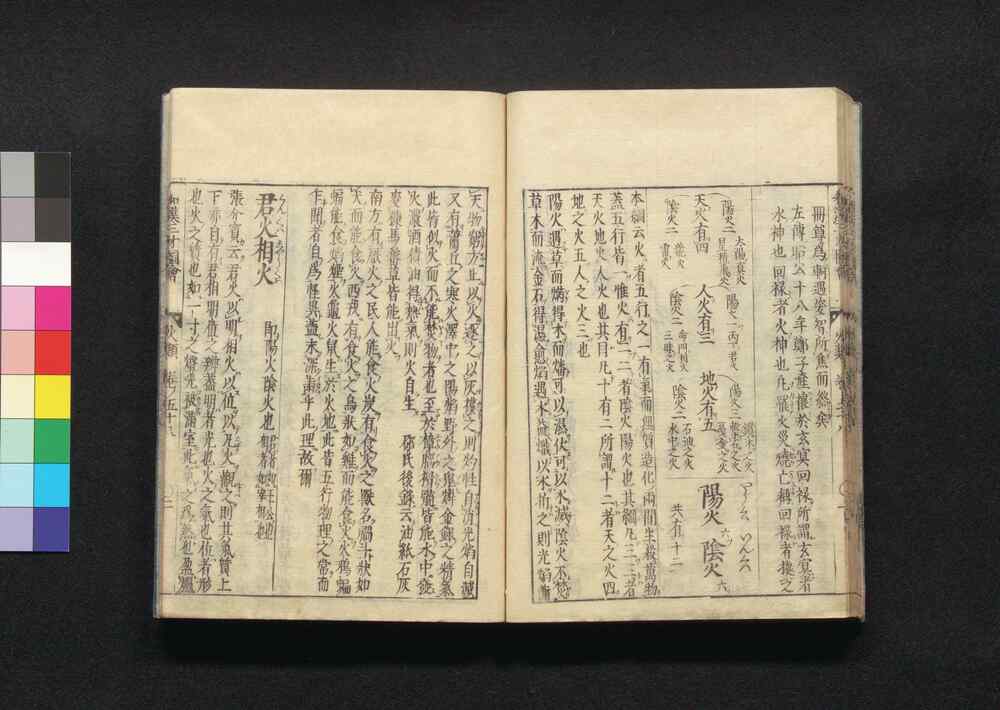 冊尊爲軻遇突智所焦而終矣
左傳昭公十八年鄭子產禳於玄冥回禄所謂玄冥者
水神也回禄者火神也凡罹火災燒亡稱回禄者據之
陽火 六
陰火 六
共六有十二
天火有四
陽火二 太陽眞火 星精飛火
陰火二 龍火 雷火
人火有三
陽火一丙丁君火
陰火二 命門相火 三昧之火
地火有五
陽火三 鑽木之火 擊石之火 戛金之火
陰火二 石油之火 水中之火
本綱云火者五行之一有氣而無質造化兩間生殺萬物
蓋五行皆一惟火有二二者陰火陽火也其綱凡三三者
天火地火人火也其目凡十有二所謂十二者天之火四
地之火五人之火三也
陽火遇草而焫得木而燔可以濕伏可以水滅陰火不焚
草木而流金石得濕愈焰遇水益熾以水折之則光焰詣
天物窮方止以火逐之以灰撲之則灼性自消光焰自滅
又有蕭丘之寒火澤中之陽焰野外之鬼燐金銀之精氣
此皆似火而不能焚物者也至於樟腦猾髓皆能水中發
火濃酒積油得熱氣則火自生
南方有厭火之民人能食火炭有食火之獸名禍斗狀如
犬而能食火西戎有食火之鳥狀如雉而能食火火鴉蝙
蝠能食焰煙火龜火鼠生於火地此皆五行物理之常而
乍聞者自爲怪異蓋未深詣乎此理故爾
君火相火
即陽火陰火也
張介賓云君火以明相火以位以凡火觀之則其氣質上
下亦自有君相明位之辨蓋明者光也火之氣也位者形
也火之質也如一寸之燈光被滿室此氣之爲然也盈爐
和漢三才圖會
火類